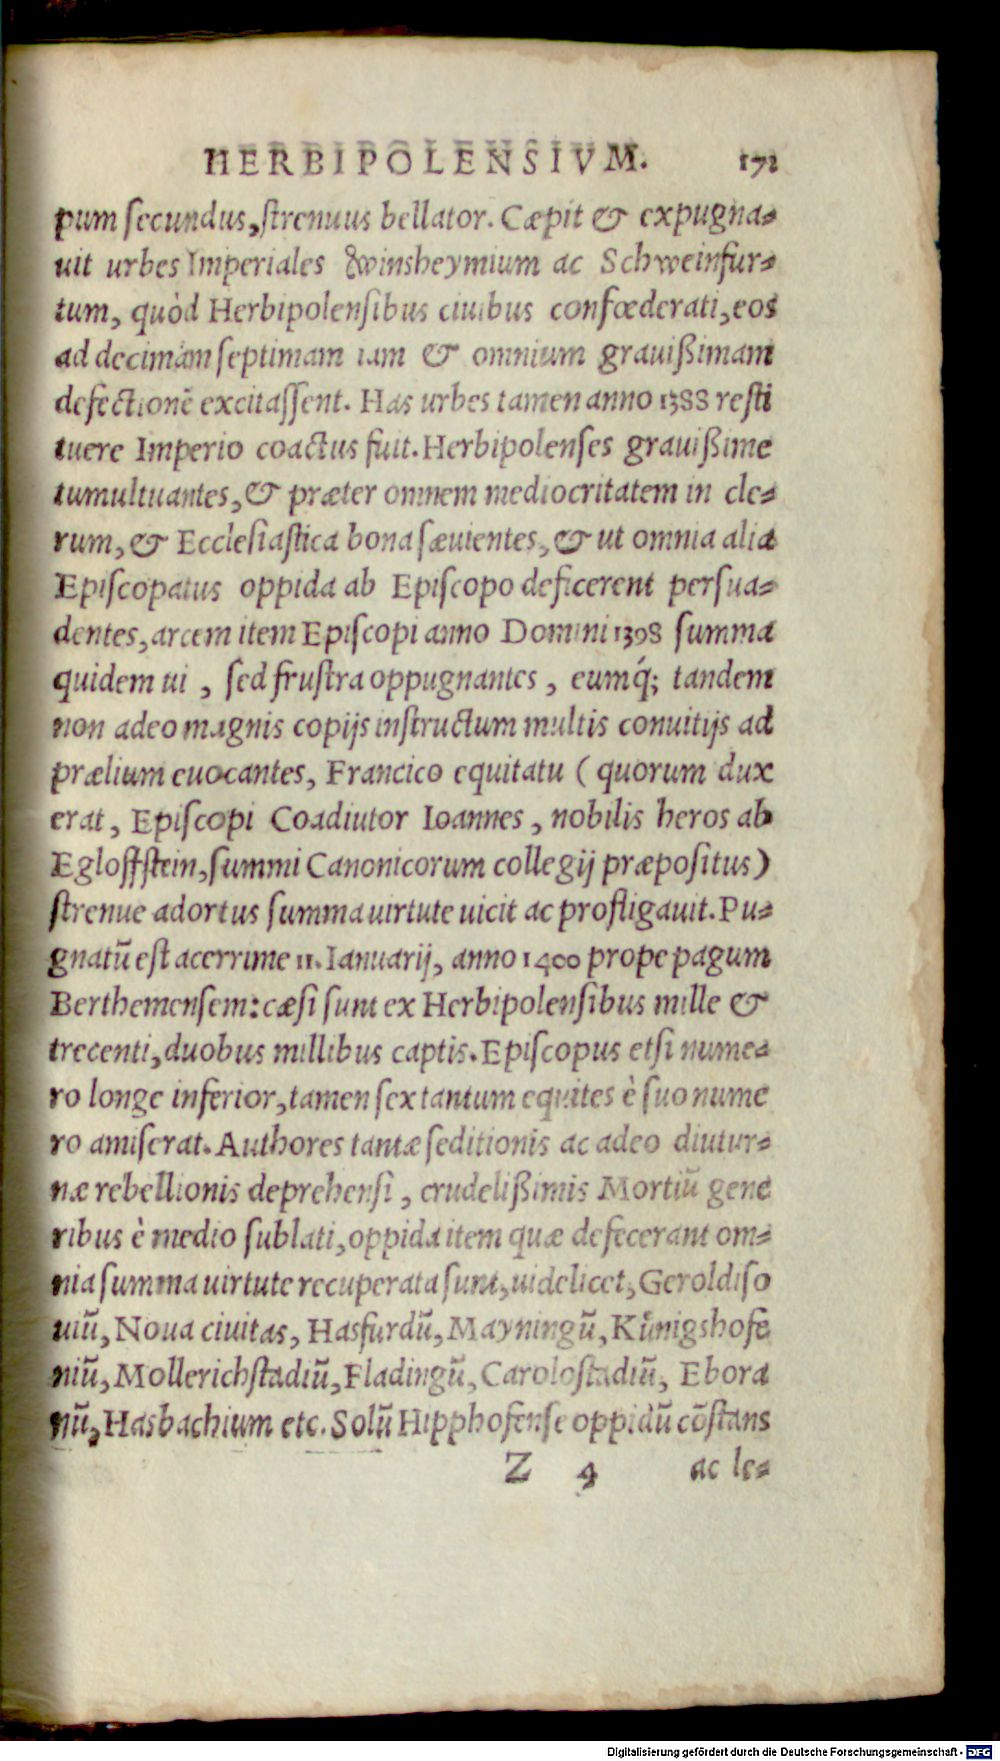 HERBIPOLENSIVM. 171
pum ſecundus, ſtrenuus bellator. Cæpit & expugna-
uit urbes Imperiales &winsheymium ac Schweinfur-
tum, quòd Herbipolenſibus ciuibus confœderati, eos
ad decimam ſeptimam iam & omnium grauißimam
defectionē excitaſſent. Has urbes tamen anno 1388 reſti
tuere Imperio coactus fuit. Herbipolenſes grauißime
tumultuantes, & præter omnem mediocritatem in cle-
rum, & Eccleſiaſtica bona ſæuientes, & ut omnia alia
Epiſcopatus oppida ab Epiſcopo deficerent perſua-
dentes, arcem item Epiſcopi anno Domini 1398 ſumma
quidem ui, ſed fruſtra oppugnantes, eumq́; tandem
non adeo magnis copijs inſtructum multis conuitijs ad
prælium euocantes, Francico equitatu ( quorum dux
erat, Epiſcopi Coadiutor Ioannes, nobilis heros ab
Egloffſtein, ſummi Canonicorum collegij præpoſitus)
ſtrenue adortus ſumma uirtute uicit ac profligauit. Pu-
gnatū eſt acerrime 11. Ianuarij, anno 1400 prope pagum
Berthemenſem: cæſi ſunt ex Herbipolenſibus mille &
trecenti, duobus millibus captis. Epiſcopus etſi nume-
ro longe inferior, tamen ſex tantum equites è ſuo nume
ro amiſerat. Authores tantæ ſeditionis ac adeo diutur-
næ rebellionis deprehenſi, crudelißimis Mortiū gene
ribus è medio ſublati, oppida item quæ defecerant om-
nia ſumma uirtute recuperata ſunt, uidelicet, Geroldiſo
uiū, Noua ciuitas, Hasfurdū, Mayningū, Kůnigshofe
niū, Mollerichſtadiū, Fladingū, Caroloſtadiū, Ebora
nū, Hasbachium etc. Solū Hipphofenſe oppidū cōſtans
Z 4 ac le-
Digitalisierung gefördert durch die Deutsche Forschungsgemeinschaft - DFG